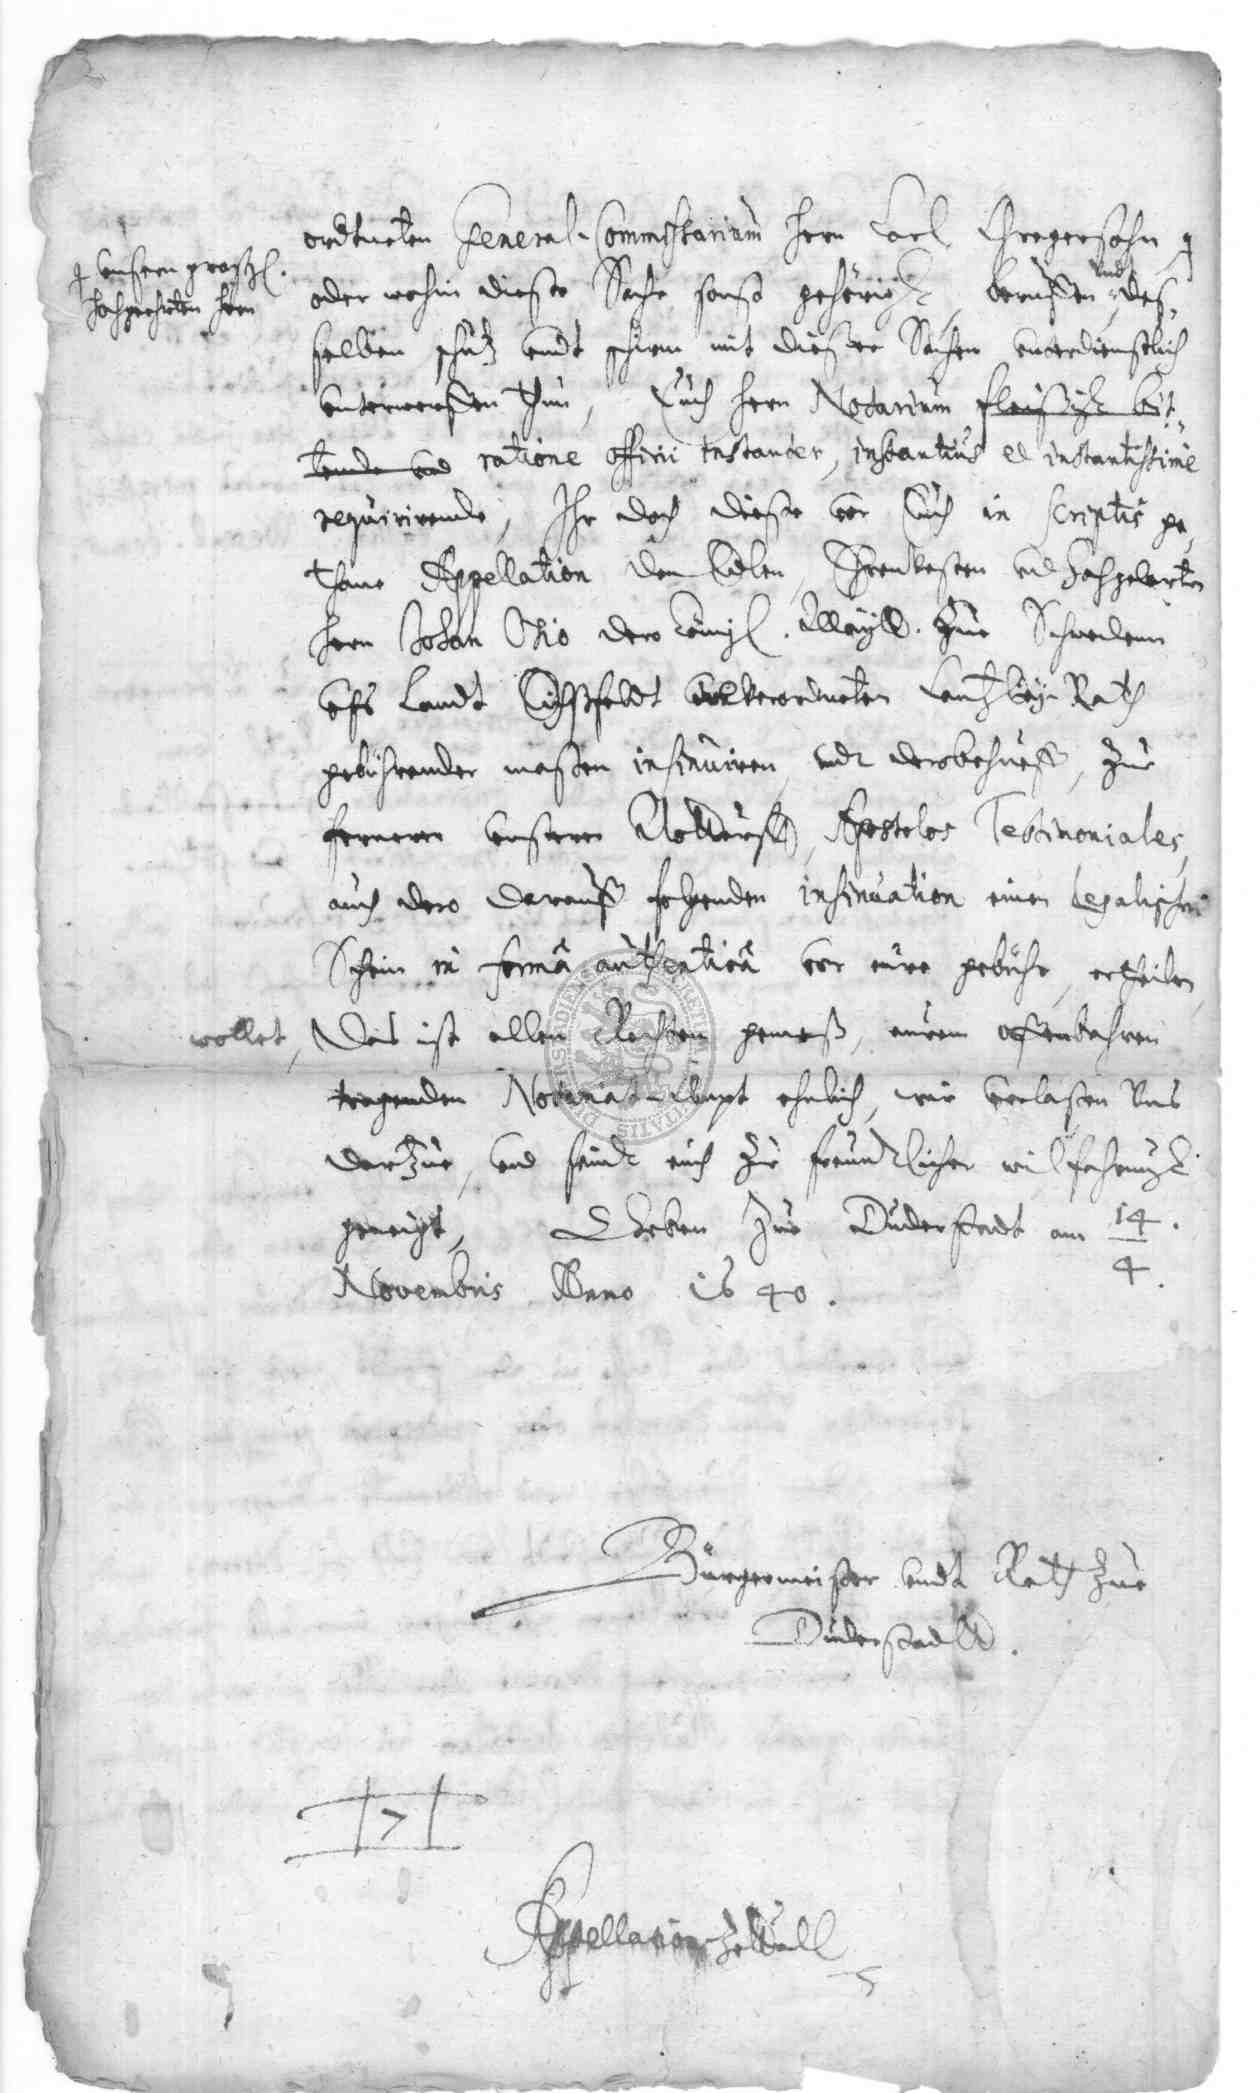 ordtneten General-Commissarium Hern Carl Gregersohn ɟ
ɟ unsern großg.
hochgeehrten Hern
oder wohin dieße Sache sonst gehörig, beruffen und deß-
selben schutz undt schirm mit dießer Sachen unterdienstlich
unterwerffen thun, Euch Hern Notarium fleißigst bit-
tende und ratione officii instanter, instantius et instantissime
requirirende, Ihr doch dieße vor Euch in scriptis ge-
thane Appellation dem Edlen, Ehrenvesten und Hochgelarten
Hern Johan Otto dero Königl. Maytt. zue Schweden
ufs Landt Eichßfeldt verordneten Cantzley Rath
gebührender maßen insinuiren, undt derobehueff, zur
ferneren unseren Notturfft, Apostolos Testimoniales,
auch dero darauff folgenden insinuation einen legalischen
Schein in formâ authenticâ vor eure gebühr, ertheilen
wollet, Das ist allen Rechten gemeß, eurem offenbahren
tragenden Notariat-Ampt ehnlich, wir verlaßen Uns
dartzue, und seindt euch zur freundtlicher wilfahrung
geneigt, Geben zue Duderstadt am 14/4.
Novembris Anno 1640.
Bürgermeister undt Rath zue
Duderstadt.
Appellation-Zettull